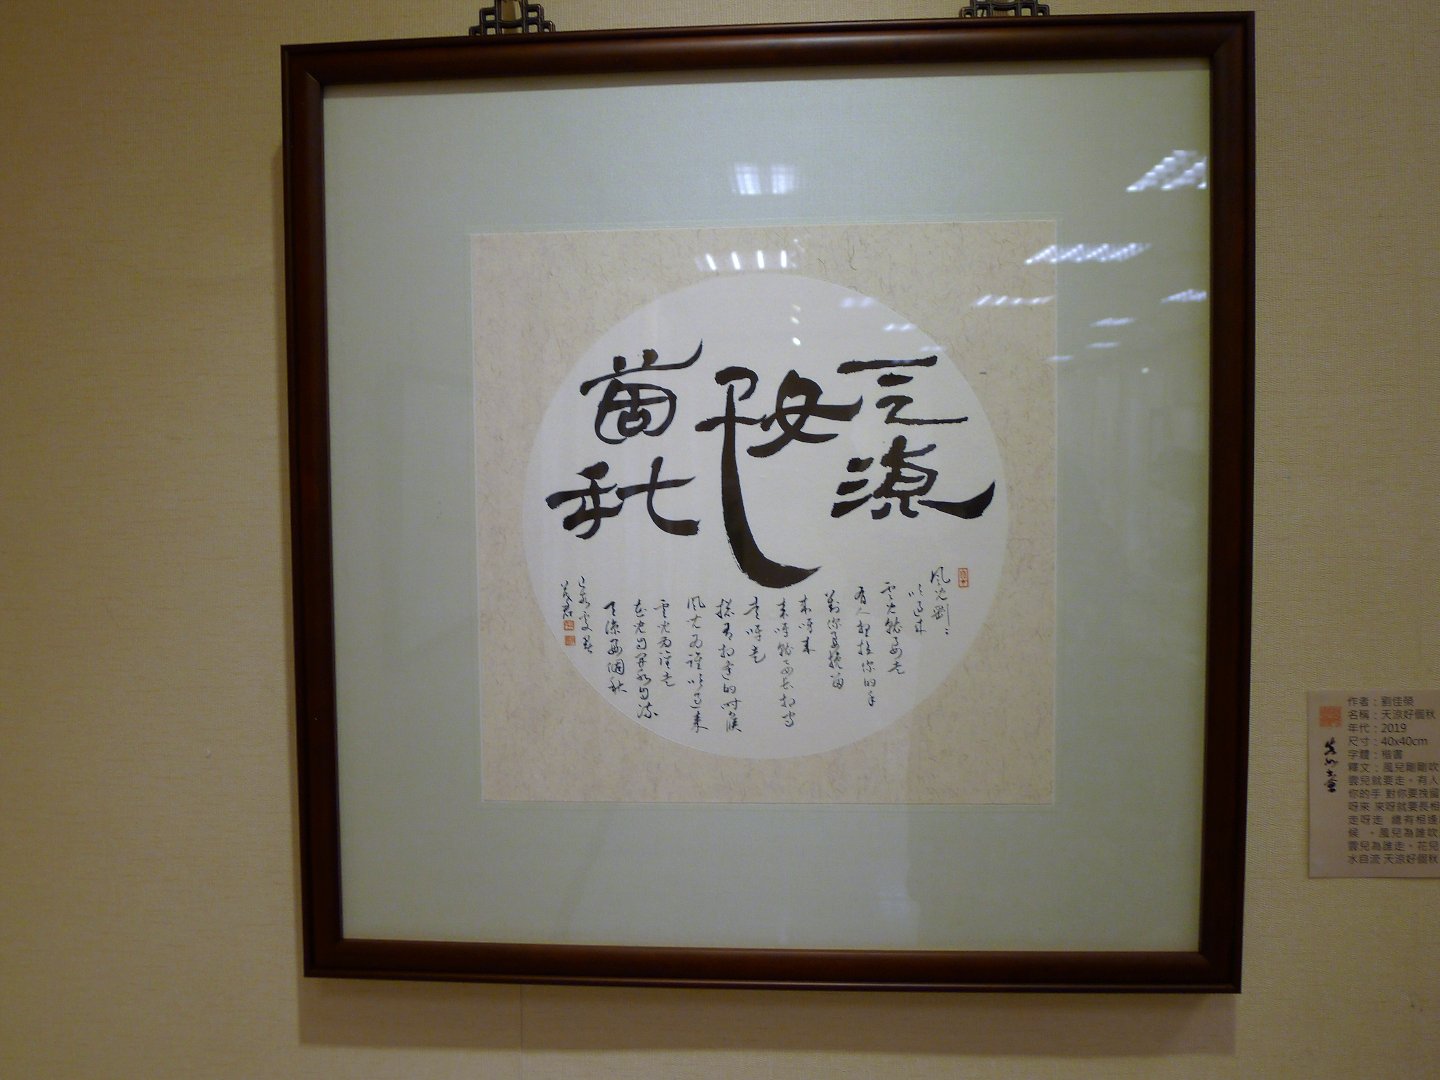 天涼
好
個秋
風兒剛剛
吹過來
雲兒就要走
有人想拉你的手
對你要挽留
來呀來
來呀就要長相守
走呀走
總有相逢的時候
風兒為誰吹過來
雲兒為誰走
花兒自開水自流
天涼好個秋
作者：劉佳榮
名稱：天涼好個秋
年代：2019
尺寸：40x40cm
字體：楷書
釋文：風兒剛剛吹
雲兒就要走。有人
你的手 對你要挽留
呀來 來呀就要長相
走呀走 總有相逢
候 。風兒為誰吹
雲兒為誰走。花兒
水自流 天涼好個秋